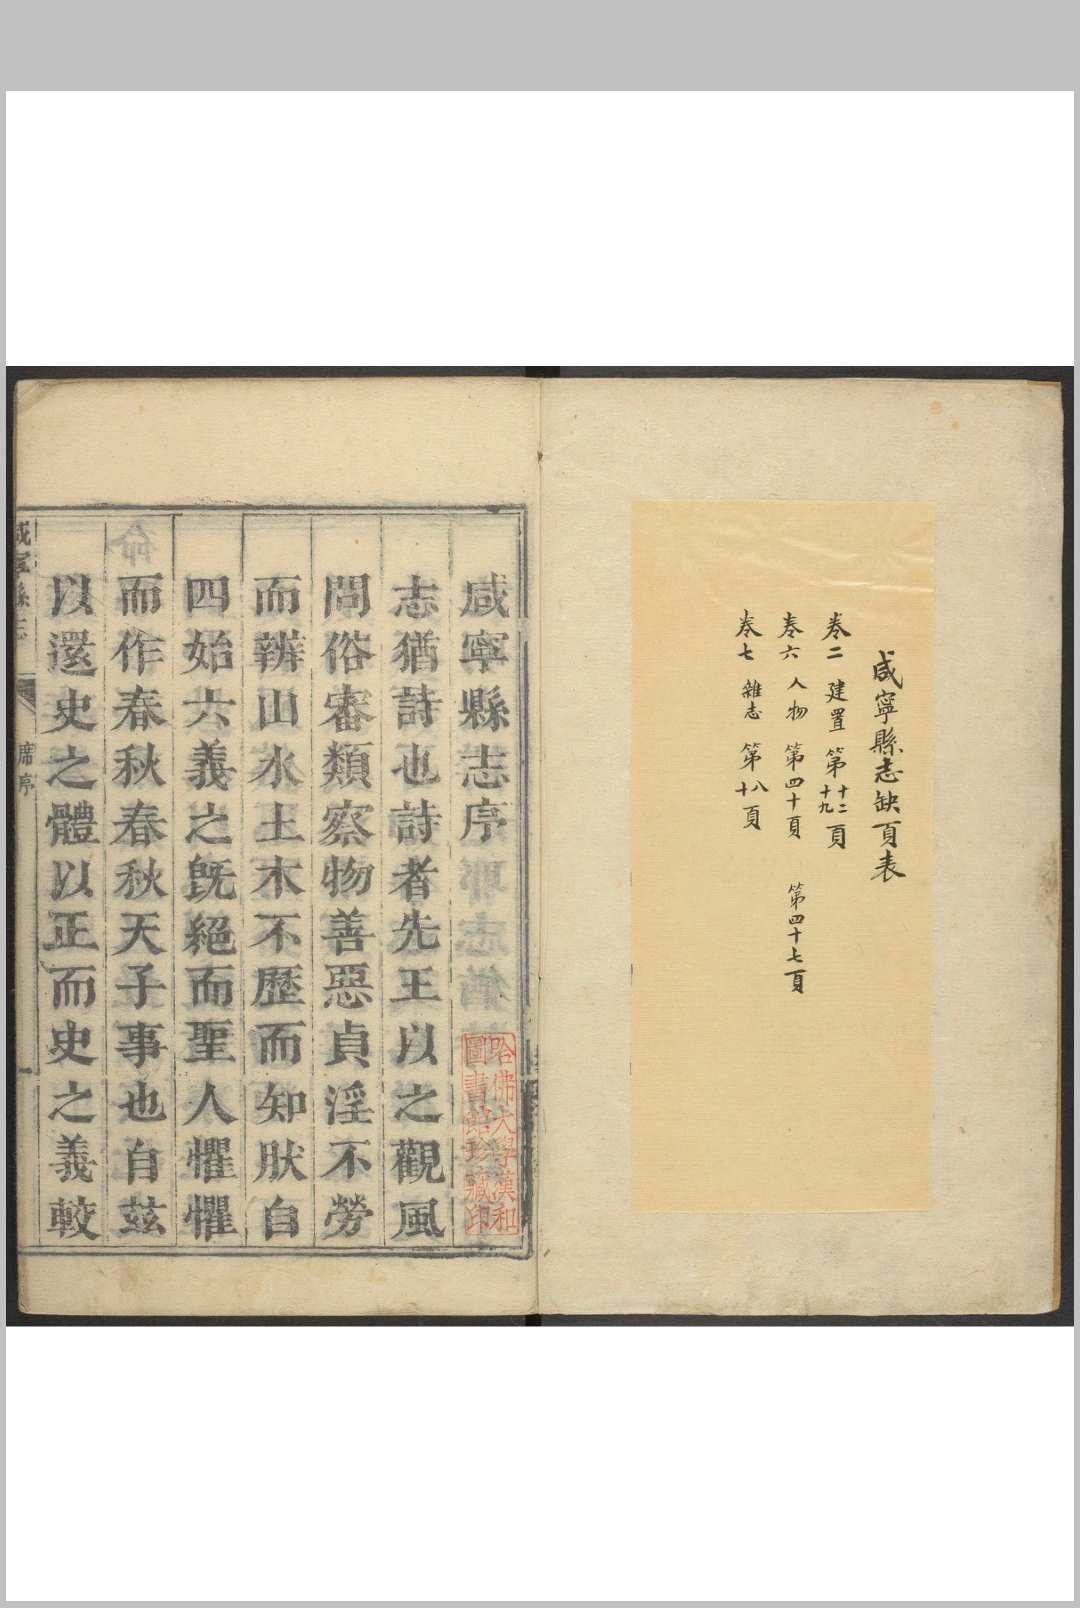 咸寧縣志缺頁表
卷二 建置 第十二十九頁
卷六 人物 第四十頁 第四十七頁
卷七 雜志 第八十頁
咸寧縣志序
志猶詩也詩者先王以之觀風
問俗審類察物善惡貞淫不勞
而辨山水土木不歷而知肰自
四始六義之旣絕而聖人懼懼
而作春秋春秋天子事也自茲
以還史之體以正而史之義較
咸寧縣志 席序 一
哈佛大學漢和
圖書館珍藏印